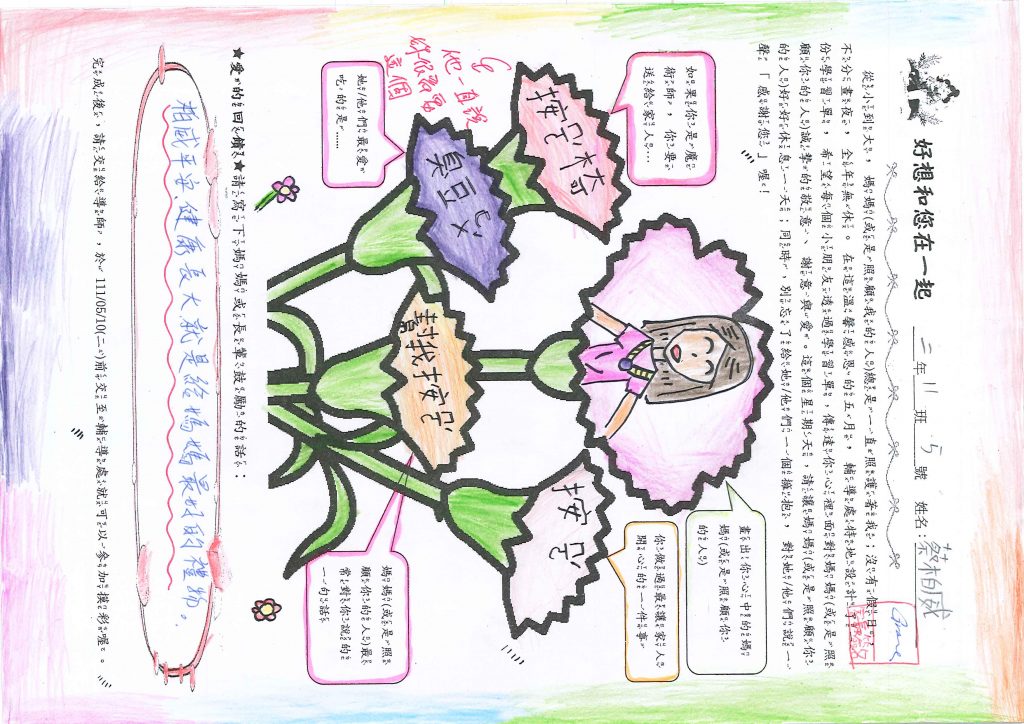 好想和您在一起 二年11班5號 姓名：蔡柏威
從小到大，媽媽(或是照顧我的人)總是一直照護著我；沒有假日，
不分晝夜，全年無休。在這溫馨感恩的五月，輔導處特地設計了
份學習單，希望每個小朋友透過學習單，傳達你心裡面對媽媽(或是照
顧你的人)誠摯的敬意、謝意與愛。這個星期天，請讓媽媽(或是照顧你
的人)好好休息一天；同時，別忘了給她/他們一個擁抱，對她/他們說一
聲「感謝您」喔！
如果你是魔
術師，你要
送給家人…
按ㄇㄛˊ椅
畫出你心中的媽
媽(或是照顧你
的人)
你做過最讓家人
開心的一件事
按ㄇㄛˊ
她/他們最愛
吃的是……
臭豆ㄈㄨˇ
他一直說
你很需要
這個
媽媽(或是照
顧你的人)最
常對你說的
一句話
幫我按ㄇㄛˊ
★愛的回饋★請寫下媽媽或長輩鼓勵的話：
柏威平安、健康長大就是給媽媽最好的禮物。
完成後，請交給導師，於111/05/10(二)前交至輔導處就可以參加摸彩喔。